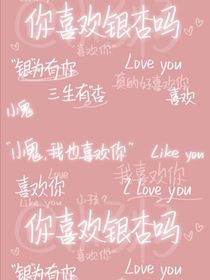 你喜欢银杏吗
喜欢你
"银为有你
Love you
真的好喜欢你
三生有杏
喜欢
小鬼
"小鬼,我也喜欢你"
Like you
Love
我喜欢你
喜欢你
Love you
Like you
小孩?
你喜欢银杏吗
喜欢你
"银为有你
Love you